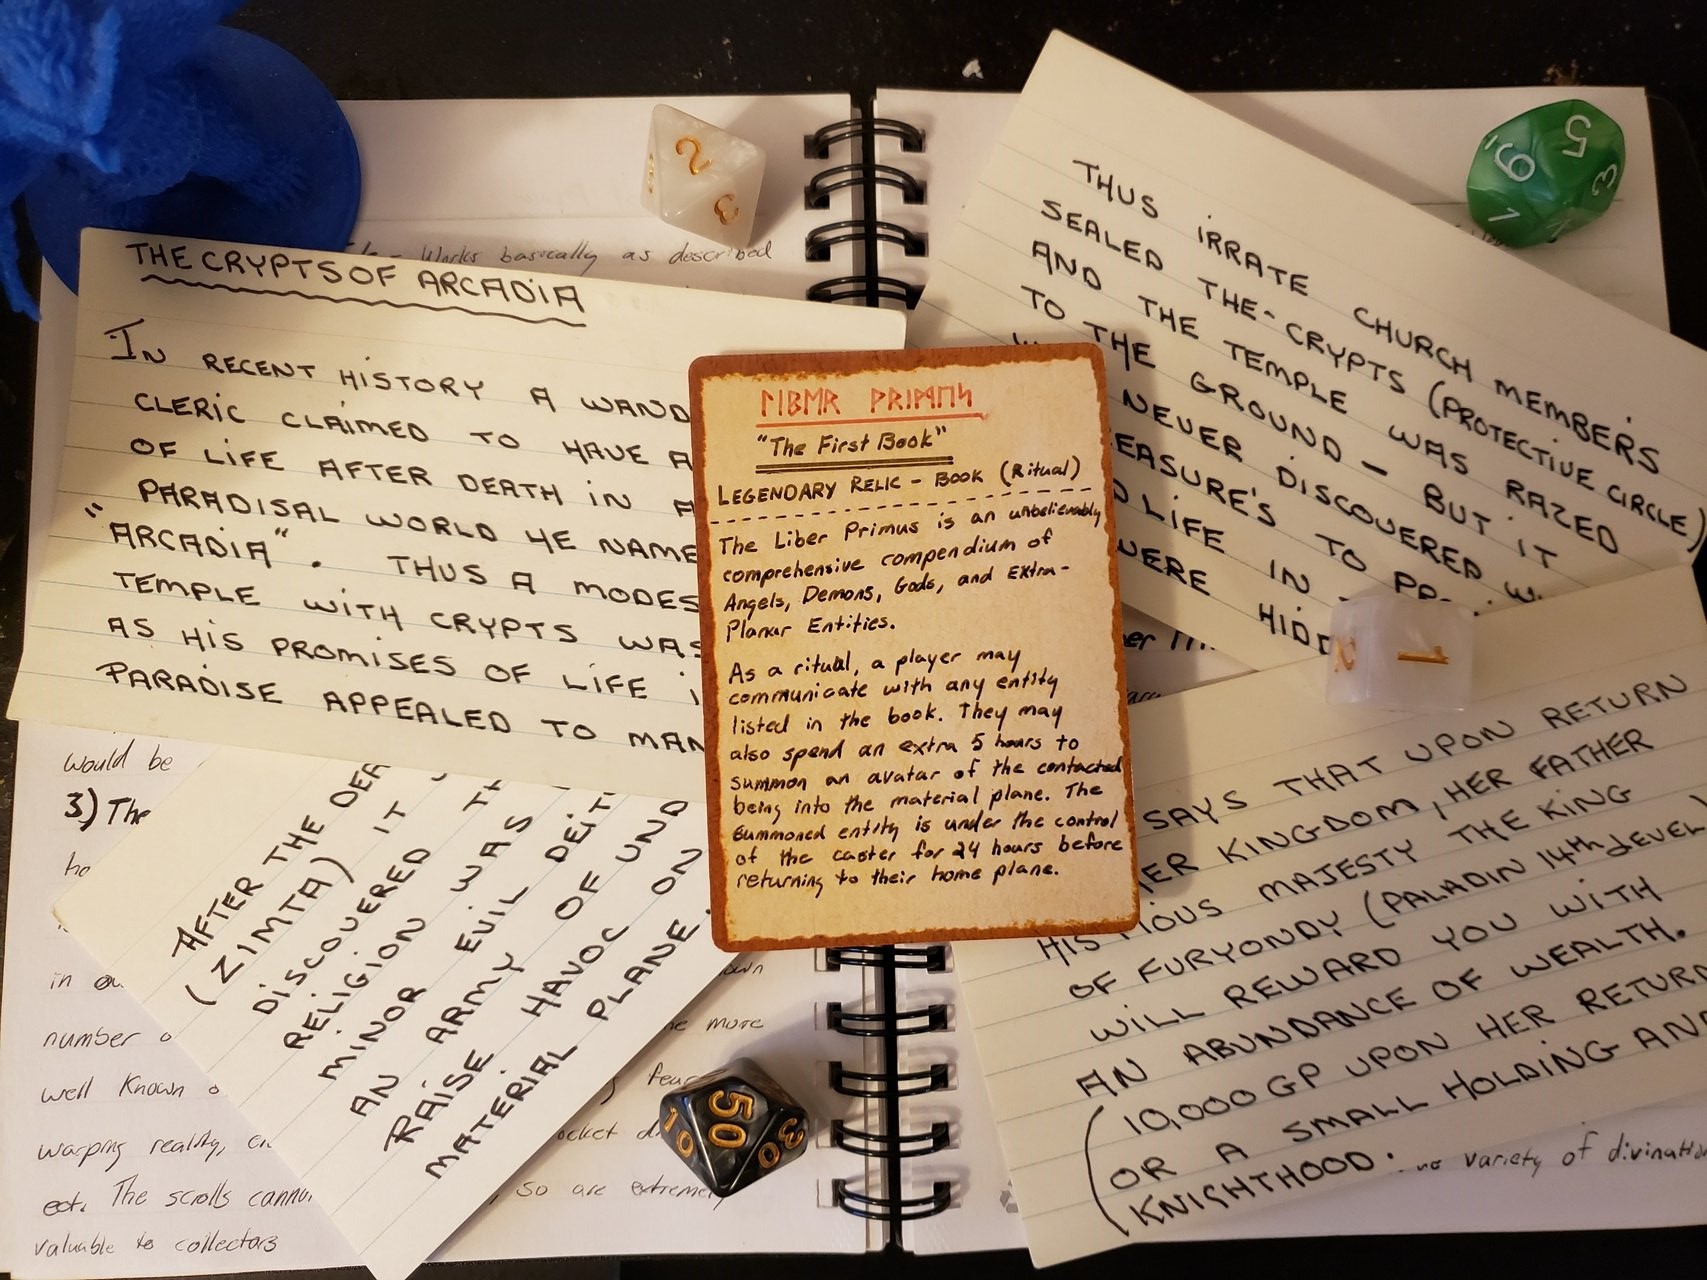 THE CRYPTS OF ARCADIA
IN RECENT HISTORY A WAND
CLERIC CLAIMED TO HAVE A
OF LIFE AFTER DEATH IN A
PARADISAL WORLD HE NAME
"ARCADIA". THUS A MODES
TEMPLE WITH CRYPTS WAS
AS HIS PROMISES OF LIFE I
PARADISE APPEALED TO MAN
THUS IRRATE CHURCH MEMBERS
SEALED THE-CRYPTS (PROTECTIVE CIRCLE)
AND THE TEMPLE WAS RAZED
TO THE GROUND – BUT IT
NEVER DISCOVERED W
EASURE'S TO PR
LIFE IN
WERE HID
ᚳᛁᛒᛖᚱ ᚹᚱᛁᛗᛖᛋ
"The First Book"
LEGENDARY RELIC – BOOK (Ritual)
The Liber Primus is an unbelievably
comprehensive compendium of
Angels, Demons, Gods, and Extra-
Planar Entities.
As a ritual, a player may
communicate with any entity
listed in the book. They may
also spend an extra 5 hours to
summon an avatar of the contacted
being into the material plane. The
summoned entity is under the control
of the caster for 24 hours before
returning to their home plane.
AFTER THE DEA
(ZIMTA) IT
DISCOVERED TH
RELIGION WAS
MINOR EVIL DEIT
AN ARMY OF UND
RAISE HAVOC ON
MATERIAL PLANE.
SAYS THAT UPON RETURN
HER KINGDOM, HER FATHER
HIS PIOUS MAJESTY THE KING
OF FURYONDY (PALADIN 14th LEVEL)
WILL REWARD YOU WITH
AN ABUNDANCE OF WEALTH.
(10,000 GP UPON HER RETURN
OR A SMALL HOLDING AND
KNIGHTHOOD.
Works basically as described
would be
3) The
ho
in ou
number o
well known o
warping reality, c
ect. The scrolls cannu
valuable to collectors
own
more
fear
ocket d
so are extremely
variety of divination
2
3
5
9
3
1
2
1
50
10
30